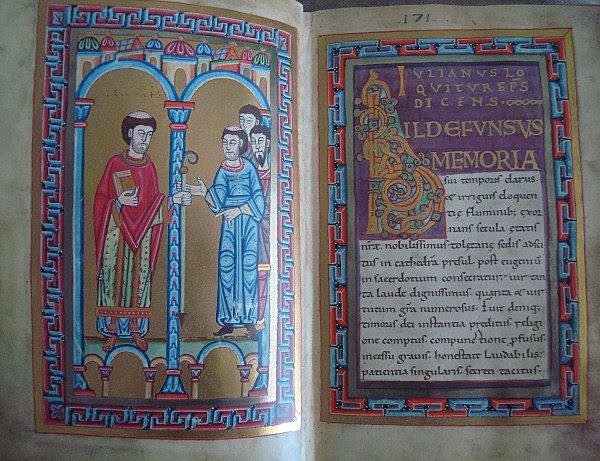 171
IULIANUS LO
QUITUR EPS
DICENS
ILDEFUNSUS
MEMORIA
sui temporis clarus.
& irriguis eloquen
tie fluminib; exor
nans secula etatis
nrae. nobilissimus toletane sedis adsci
tus in cathedra. presul post eugeniu
in sacerdotum consecratur. vir tan
ta laude dignissimus. quanta & vir
tutum gra numerosus. Fuit deniq;
timoris dei instantia preditus. religi
one comptus. compunctione profusus.
incessu gravis. honestate laudabilis.
patientia singularis. secreti tacitus.